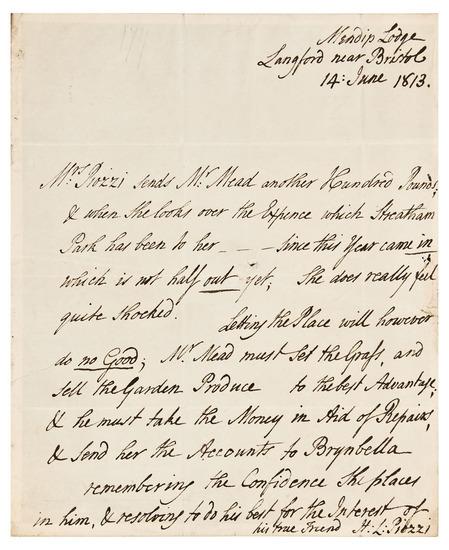 Mendip Lodge
Langford near Bristol
14: June 1813.
Mrs. Piozzi sends Mr. Mead another Hundred Pounds;
& when She looks over the Expence which Streatham
Park has been to her _ _ _ since this Year came in
which is not half out yet; She does really feel
quite Shocked. Letting the Place will however
do no Good; Mr. Mead must Set the Grass, and
sell the Garden Produce to the best Advantage;
& he must take the Money in Aid of Repairs,
& Send her the Accounts to Brynbella
remembering the Confidence She places
in him, & resolving to do his best for the Interest of
his true Friend H: L: Piozzi